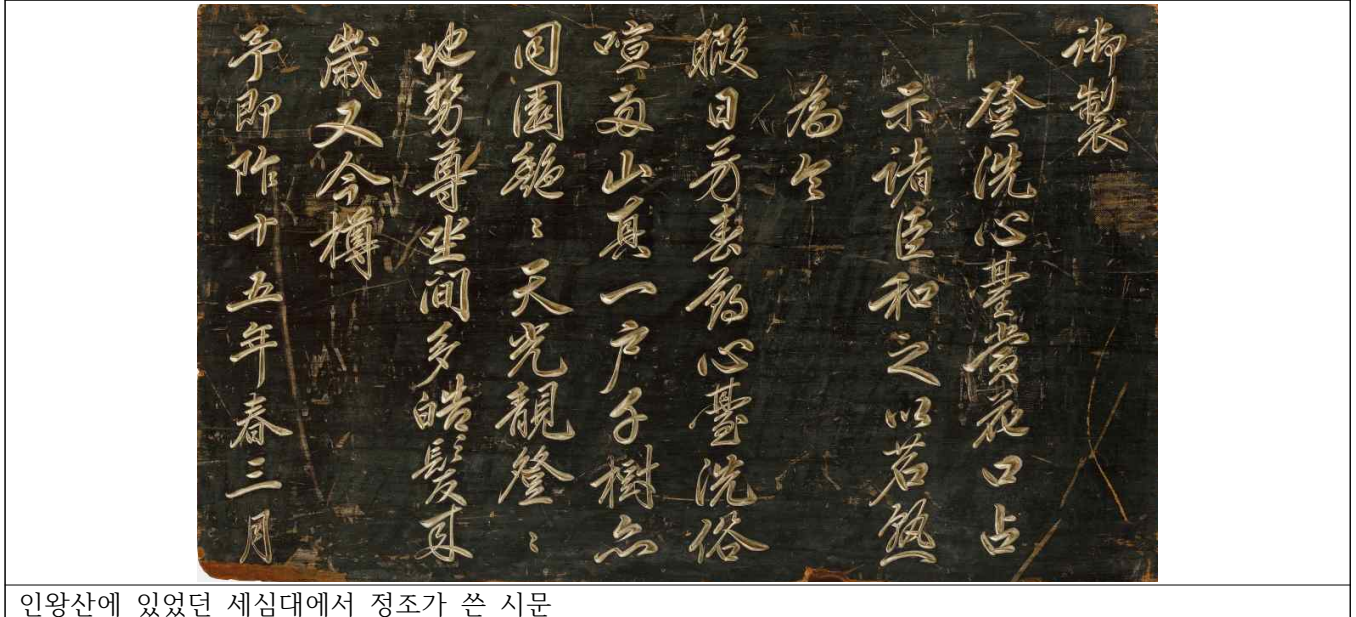 御製
登洗心臺賞花口占
示諸臣和之以茗熟
為令
暇日芳春節心臺洗俗
喧兩山真一戶千樹亦
同園艶〻天光靚登〻
地勢尊坐間多皓髮来
歲又今樽
予即阼十五年春三月
인왕산에 있었던 세심대에서 정조가 쓴 시문